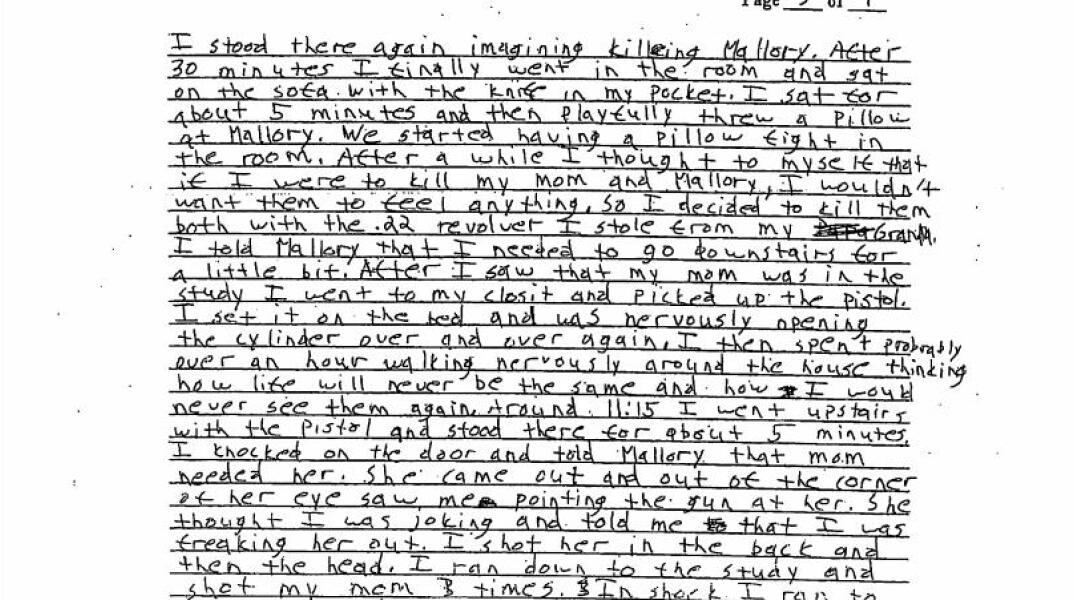 Page 3 of 4
I stood there again imagining killeing Mallory. After
30 minutes I finally went in the room and sat
on the sofa with the knife in my pocket. I sat for
about 5 minutes and then playfully threw a pillow
at Mallory. We started having a pillow fight in
the room. After a while I thought to myself that
if I were to kill my mom and Mallory, I wouldn't
want them to feel anything, so I decided to kill them
both with the .22 revolver I stole from my Grandpa.
I told Mallory that I needed to go downstairs for
a little bit. After I saw that my mom was in the
study I went to my closit and picked up the pistol.
I set it on the bed and was nervously opening
the cylinder over and over again. I then spent probably
over an hour walking nervously around the house thinking
how life will never be the same and how I would
never see them again. Around 11:15 I went upstairs
with the pistol and stood there for about 5 minutes.
I knocked on the door and told Mallory that mom
needed her. She came out and out of the corner
of her eye saw me pointing the gun at her. She
thought I was joking and told me that I was
freaking her out. I shot her in the back and
then the head. I ran down to the study and
shot my mom 3 times. In shock I ran to